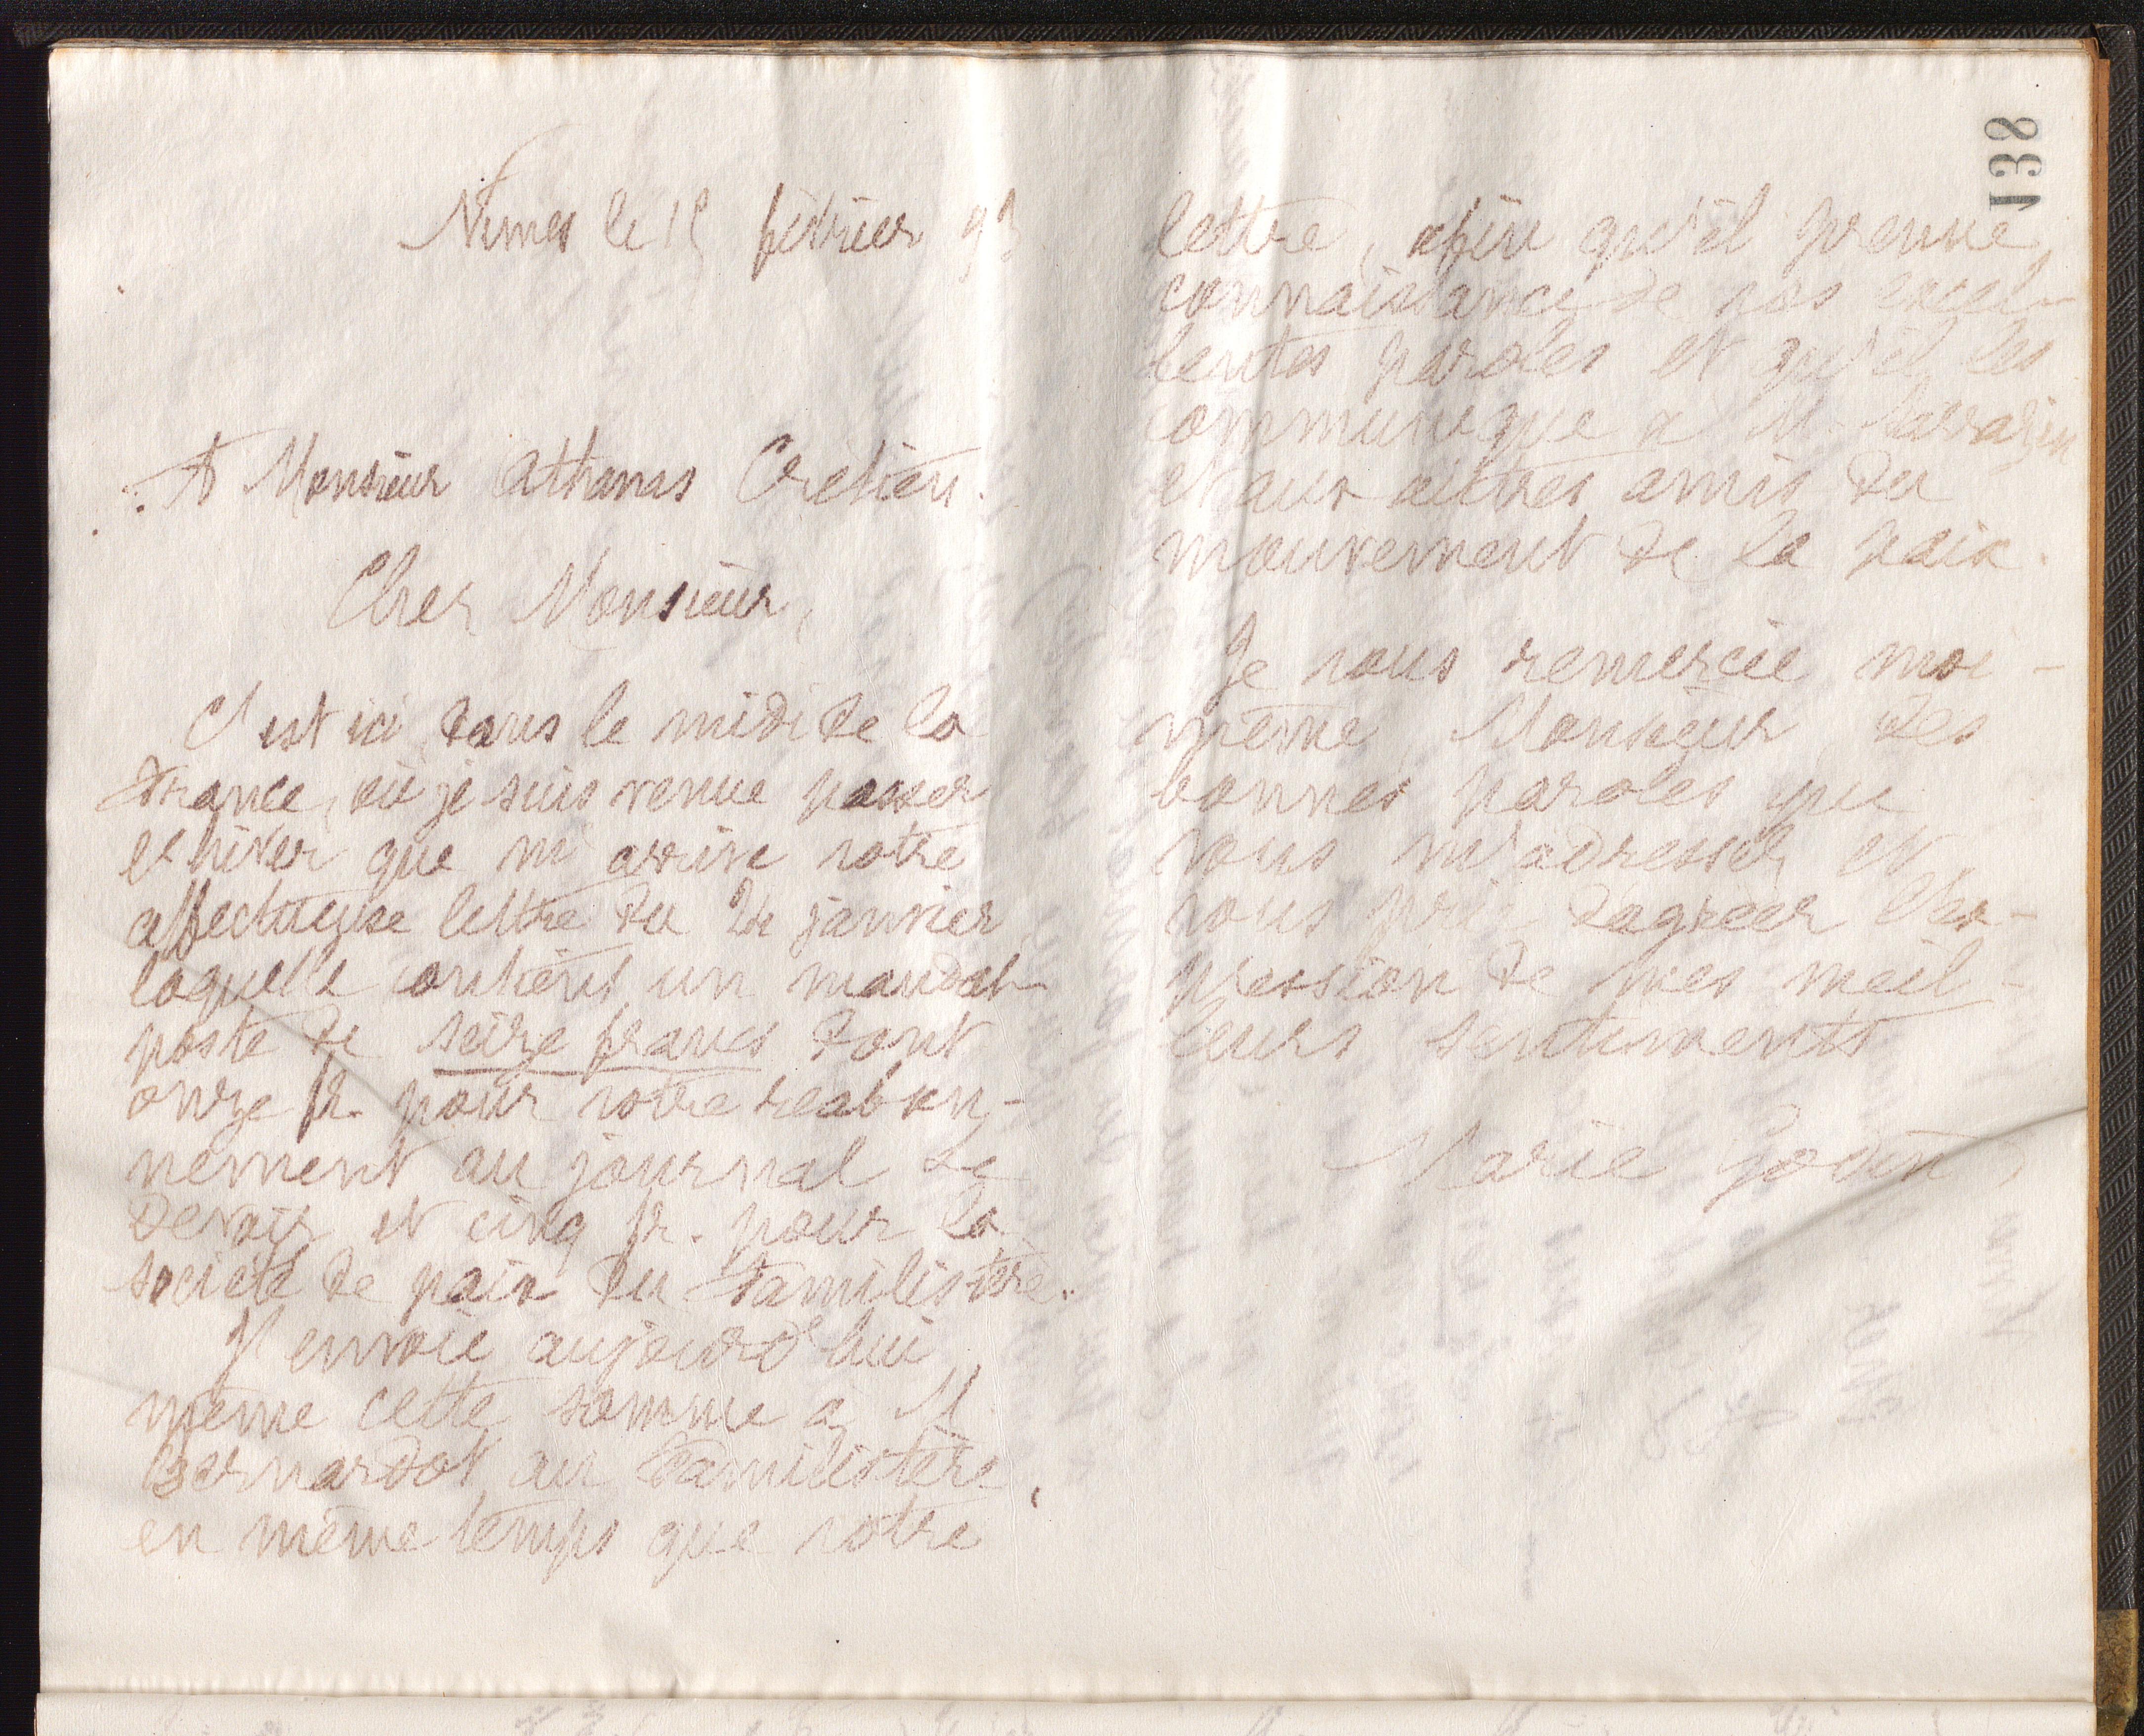 138
Nimes le 15 février 93
A Monsieur Athanas Cretien.
Cher Monsieur,
C'est ici, dans le midi de la
France, où je suis venue passer
l'hiver que m'arrive votre
affectueuse lettre du 24 janvier
laquelle contient un mandat
poste de seize francs dont
onze fr. pour votre réabon-
nement au journal Le
Devoir et cinq fr. pour la
société de paix du Familistère.
J'envoie aujourd'hui
même cette somme à M.
Bernardot au Familistère,
en même temps que votre
lettre, afin qu'il prenne
connaissance de vos excel-
lentes paroles et qu'il les
communique à M. Sarrazin
et aux autres amis du
mouvement de la paix.
Je vous remercie moi-
même, Monsieur, des
bonnes paroles que
vous m'adressez et
vous prie d'agréer l'ex-
pression de mes meil-
leurs sentiments
Marie Godin